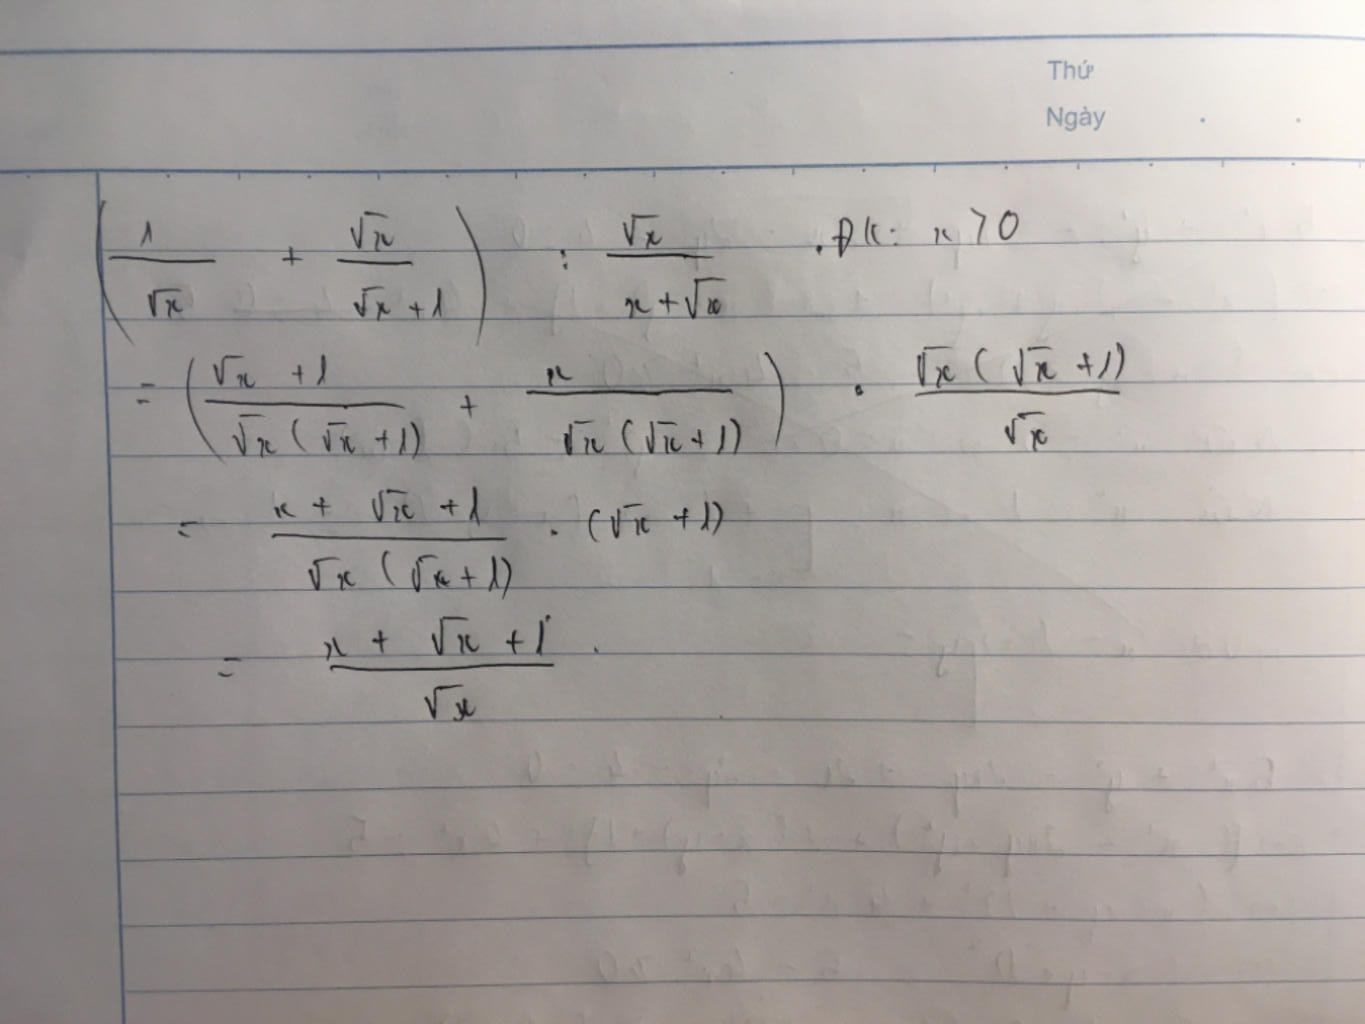 Thứ
Ngày
(1/√x + √x/(√x + 1)) : √x/(x + √x) . ĐK: x > 0
= ((√x + 1)/(√x (√x + 1)) + x/(√x (√x + 1))) . √x (√x + 1)/√x
= (x + √x + 1)/(√x (√x + 1)) . (√x + 1)
= (x + √x + 1)/√x .